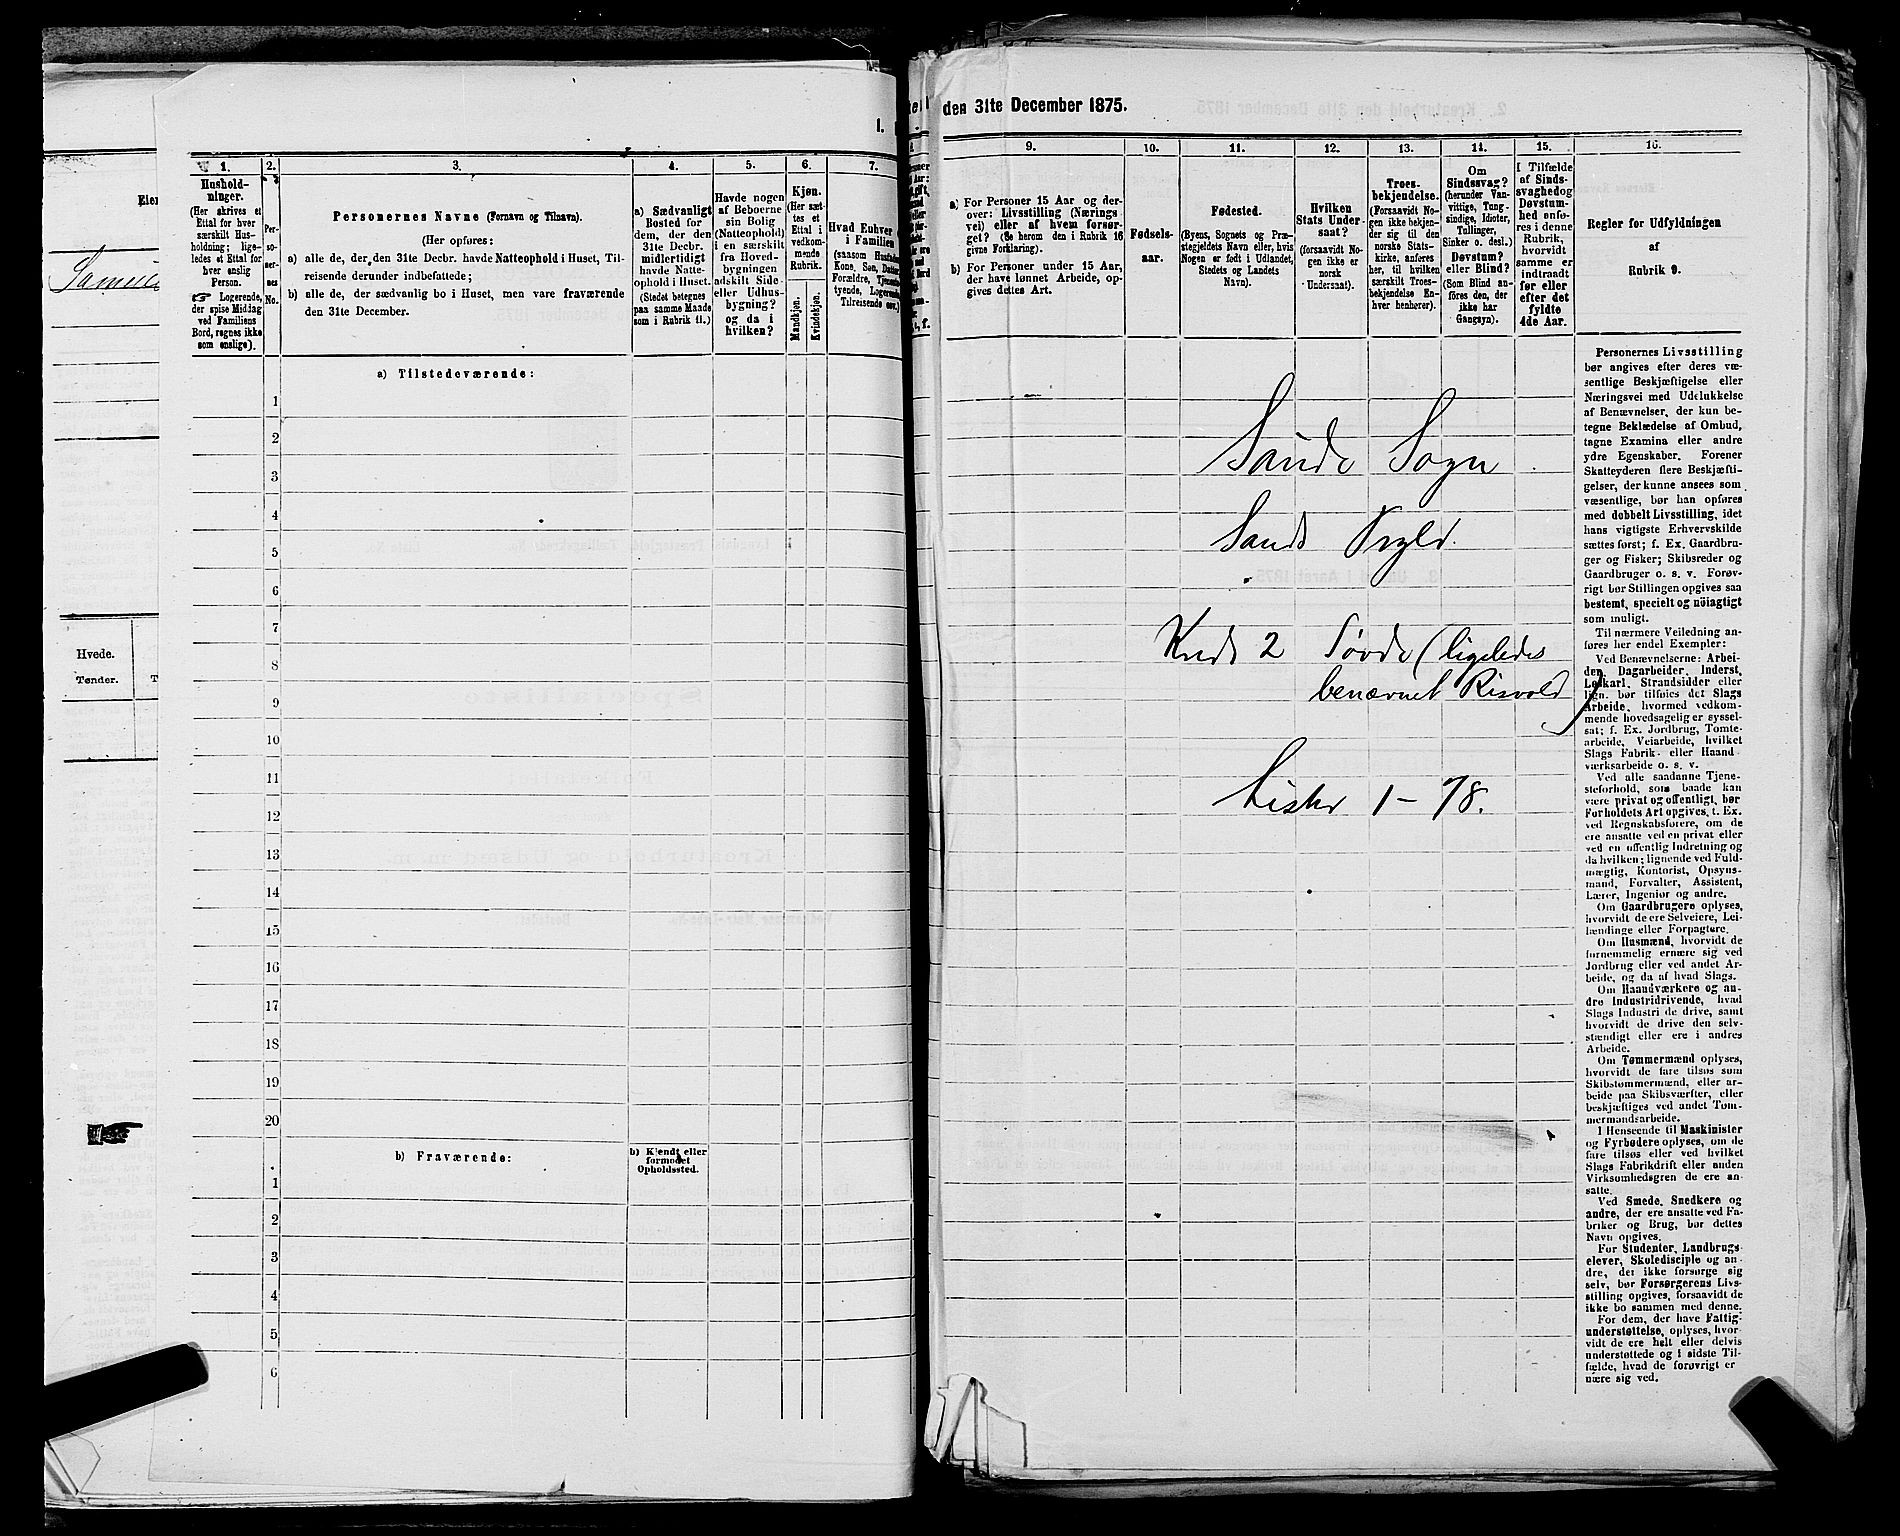 Eier
Samuel
Hvede.
Tønder.
1.
1.
Hushold-
ninger.
(Her skrives et
Ettal for hver
særskilt Hus-
holdning; lige-
ledes et Ettal for
hver enslig
Person.
☞ Logerende,
der spise Middag
ved Familiens
Bord, regnes ikke
som enslige).
2.
Per-
so-
ner-
nes
No.
3.
Personernes Navne (Fornavn og Tilnavn).
(Her opføres:
a) alle de, der den 31te Decbr. havde Natteophold i Huset, Til-
reisende derunder indbefattede;
b) alle de, der sædvanlig bo i Huset, men vare fraværende
den 31te December.
4.
a) Sædvanligt
Bosted for
dem, der den
31te Decbr.
midlertidigt
havde Natte-
ophold i Huset.
(Stedet betegnes
paa samme Maade
som i Rubrik 11.)
5.
Havde nogen
af Beboerne
sin Bolig
(Natteophold)
i en særskilt
fra Hoved-
bygningen
adskilt Side-
eller Udhus-
bygning?
og da i
hvilken?
6.
Kjøn.
(Her sæt-
tes et
Ettal i
vedkom-
mende
Rubrik.
Mandkjøn.
Kvindekjøn.
7.
Hvad Enhver
i Familien
(saasom Husfader,
Kone, Søn, Datter,
Forældre, Tjenes-
tyende, Logerende,
Tilreisende osv.)
a) Tilstedeværende:
1
2
3
4
5
6
7
8
9
10
11
12
13
14
15
16
17
18
19
20
b) Fraværende:
b) Kjendt eller
formodet
Opholdssted.
1
2
3
4
5
6
den 31te December 1875.
9.
a) For Personer 15 Aar og der-
over: Livsstilling (Nærings-
vei) eller af hvem forsør-
get? (Se herom den i Rubrik 16
givne Forklaring).
b) For Personer under 15 Aar,
der have lønnet Arbeide, op-
gives dettes Art.
10.
Fødsels-
aar.
11.
Fødested.
(Byens, Sognets og Præ-
stegjeldets Navn eller, hvis
Nogen er født i Udlandet,
Stedets og Landets
Navn).
12.
Hvilken
Stats Under-
saat?
(forsaavidt No-
gen ikke er
norsk
Undersaat).
13.
Troes-
bekjendelse.
(Forsaavidt No-
gen ikke bekjen-
der sig til den
norske Stats-
kirke, anføres
her, til hvilken
særskilt Troes-
bekjendelse En-
hver henhører).
14.
Om
Sindssvag?
(herunder Van-
vittige, Tung-
sindige, Idioter,
Tullinger,
Sinker o. desl.)
Døvstum?
eller Blind?
(Som Blind an-
føres den, der
ikke har
Gangsyn).
15.
I Tilfælde
af Sinds-
svaghed og
Døvstum-
hed anfø-
res i denne
Rubrik,
hvorvidt
samme er
indtraadt
før eller
efter det
fyldte
4de Aar.
16.
Regler for Udfyldningen
af
Rubrik 9.
Sande Sogn
Sands Prgld.
Kreds 2 Søvde (ligeledes
benævnet Risvold)
Lister 1 – 78.
Personernes Livsstilling
bør angives efter deres væ-
sentlige Beskjæftigelse eller
Næringsvei med Udelukkelse
af Benævnelser, der kun be-
tegne Beklædelse af Ombud,
tagne Examina eller andre
ydre Egenskaber. Forener
Skatteyderen flere Beskjæfti-
gelser, der kunne ansees som
væsentlige, bør han opføres
med dobbelt Livsstilling, idet
hans vigtigste Erhvervskilde
sættes først; f. Ex. Gaardbru-
ger og Fisker; Skibsreder og
Gaardbruger o. s. v. Forøv-
rigt bør Stillingen opgives saa
bestemt, specielt og nöiagtigt
som muligt.
Til nærmere Veiledning an-
føres her endel Exempler:
Ved Benævnelserne: Arbei-
der, Dagarbeider, Inderst,
Løskarl, Strandsidder eller
lign. bør tilføies det Slags
Arbeide, hvormed vedkom-
mende hovedsagelig er syssel-
sat; f. Ex. Jordbrug, Tomte-
arbeide, Veiarbeide, hvilket
Slags Fabrik- eller Haand-
værksarbeide o. s. v.
Ved alle saadanne Tjene-
steforhold, som baade kan
være privat og offentligt, bør
Forholdets Art opgives, t. Ex.
ved Regnskabsførere, om de
ere ansatte ved en privat eller
ved en offentlig Indretning og
da hvilken; lignende ved Fuld-
mægtig, Kontorist, Opsyns-
mand, Forvalter, Assistent,
Lærer, Ingeniør og andre.
Om Gaardbrugere oplyses,
hvorvidt de ere Selveiere, Lei-
lændinge eller Forpagtere.
Om Husmænd, hvorvidt de
fornemmelig ernære sig ved
Jordbrug eller ved andet Ar-
beide, og da af hvad Slags.
Om Haandværkere og an-
dre Industridrivende, hvad
Slags Industri de drive, samt
hvorvidt de drive den selv-
stændigt eller ere i andres
Arbeide.
Om Tømmermænd oplyses,
hvorvidt de fare tilsøs som
Skibstømmermænd, eller ar-
beide paa Skibsværfter, eller
beskjæftiges ved andet Tøm-
mermandsarbeide.
I Henseende til Maskinister
og Fyrbødere oplyses, om de
fare tilsøs eller ved hvilket
Slags Fabrikdrift eller anden
Virksomhedsgren de ere an-
satte.
Ved Smede, Snedkere og
andre, der ere ansatte ved Fa-
briker og Brug, bør dettes
Navn opgives.
For Studenter, Landbrugs-
elever, Skoledisciple og an-
dre, der ikke forsørge sig
selv, bør Forsørgerens Livs-
stilling opgives, forsaavidt de
ikke bo sammen med denne.
For dem, der have Fattig-
understøttelse, oplyses, hvor-
vidt de ere helt eller delvis
understøttede og i sidste Til-
fælde, hvad de forøvrigt er-
nære sig ved.